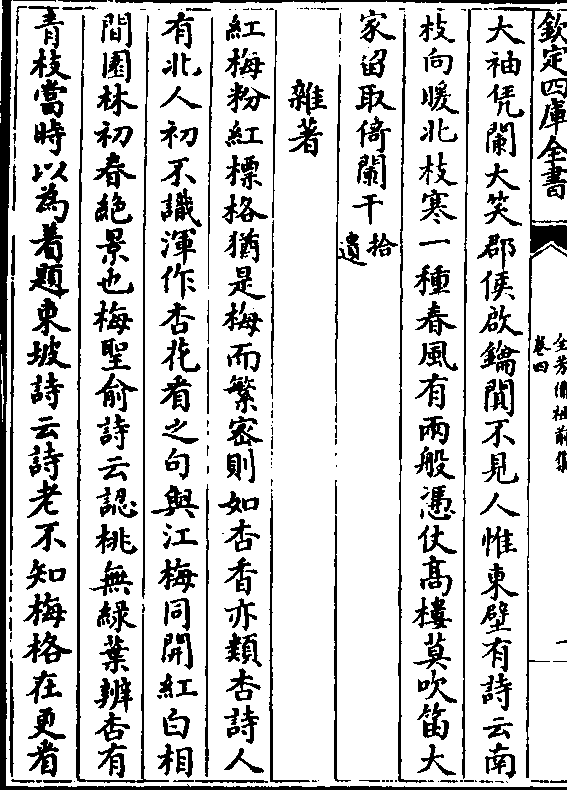 欽定四庫全書
全芳備祖前集
卷四
大袖凭闌大笑郡侯啟鑰閴不見人惟東壁有詩云南
枝向暖北枝寒一種春風有兩般憑仗髙樓莫吹笛大
家留取倚闌干拾遺
雜著
紅梅粉紅標格猶是梅而繁密則如杏香亦類杏詩人
有北人初不識渾作杏花看之句與江梅同開紅白相
間園林初春絶景也梅聖俞詩云認桃無緑葉辨杏有
青枝當時以為着題東坡詩云詩老不知梅格在更看